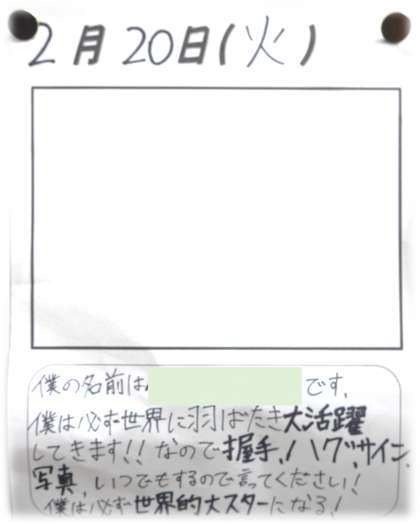 2月20日(火)
僕の名前は です。
僕は必ず世界に羽ばたき大活躍
してきます!!なので握手!ハグ、サイン、
写真、いつでもするので言ってください!
僕は必ず世界的大スターになる!